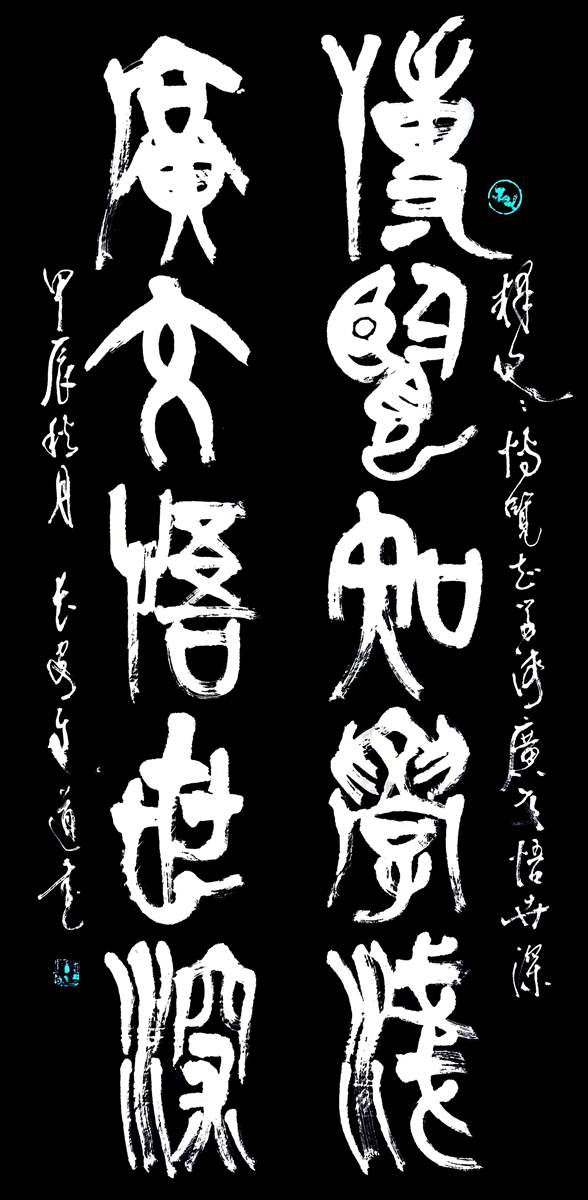 釋文：博覽知學淺廣交悟世深
博覽知學淺
廣交悟世深
甲辰秋月 长安道書